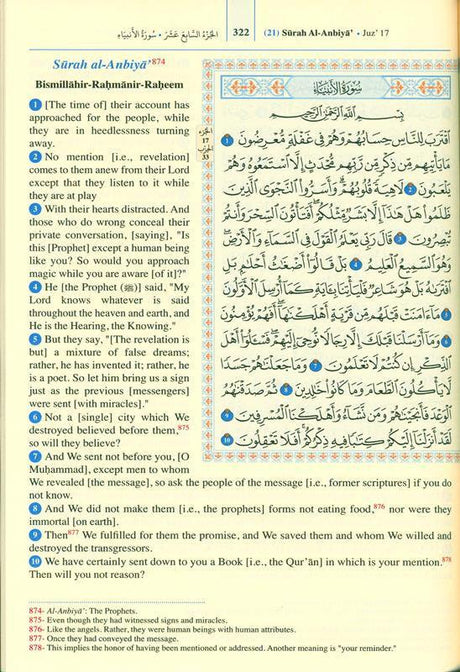 الجزء السابع عشر • سورة الأنبياء
322
(21) Sūrah Al-Anbiyā’ • Juz’ 17
Sūrah al-Anbiyā’874
Bismillāhir-Raḥmānir-Raḥeem
1 [The time of] their account has
approached for the people, while
they are in heedlessness turning
away.
2 No mention [i.e., revelation]
comes to them anew from their Lord
except that they listen to it while
they are at play
3 With their hearts distracted. And
those who do wrong conceal their
private conversation, [saying], "Is
this [Prophet] except a human being
like you? So would you approach
magic while you are aware [of it]?"
4 He [the Prophet (ﷺ)] said, "My
Lord knows whatever is said
throughout the heaven and earth, and
He is the Hearing, the Knowing."
5 But they say, "[The revelation is
but] a mixture of false dreams;
rather, he has invented it; rather, he
is a poet. So let him bring us a sign
just as the previous [messengers]
were sent [with miracles]."
6 Not a [single] city which We
destroyed believed before them,875
so will they believe?
7 And We sent not before you, [O
Muḥammad], except men to whom
We revealed [the message], so ask the people of the message [i.e., former scriptures] if you do
not know.
8 And We did not make them [i.e., the prophets] forms not eating food,876 nor were they
immortal [on earth].
9 Then877 We fulfilled for them the promise, and We saved them and whom We willed and
destroyed the transgressors.
10 We have certainly sent down to you a Book [i.e., the Qur’ān] in which is your mention.878
Then will you not reason?
الجزء
17
الحزب
33
سورة الأنبياء
بسم الله الرحمن الرحيم
اقترب للناس حسابهم وهم في غفلة معرضون 1
ما يأتيهم من ذكر من ربهم محدث إلا استمعوه وهم
يلعبون 2 لاهية قلوبهم وأسروا النجوى الذين
ظلموا هل هذا إلا بشر مثلكم أفتأتون السحر وأنتم
تبصرون 3 قال ربي يعلم القول في السماء والأرض
وهو السميع العليم 4 بل قالوا أضغاث أحلام بل
افتراه بل هو شاعر فليأتنا بآية كما أرسل الأولون
5 ما آمنت قبلهم من قرية أهلكناها أفهم يؤمنون
6 وما أرسلنا قبلك إلا رجالا نوحي إليهم فسئلوا أهل
الذكر إن كنتم لا تعلمون 7 وما جعلناهم جسدا
لا يأكلون الطعام وما كانوا خالدين 8 ثم صدقناهم
الوعد فأنجيناهم ومن نشاء وأهلكنا المسرفين 9
لقد أنزلنا إليكم كتابا فيه ذكركم أفلا تعقلون 10
874- Al-Anbiyā’: The Prophets.
875- Even though they had witnessed signs and miracles.
876- Like the angels. Rather, they were human beings with human attributes.
877- Once they had conveyed the message.
878- This implies the honor of having been mentioned or addressed. Another meaning is "your reminder."